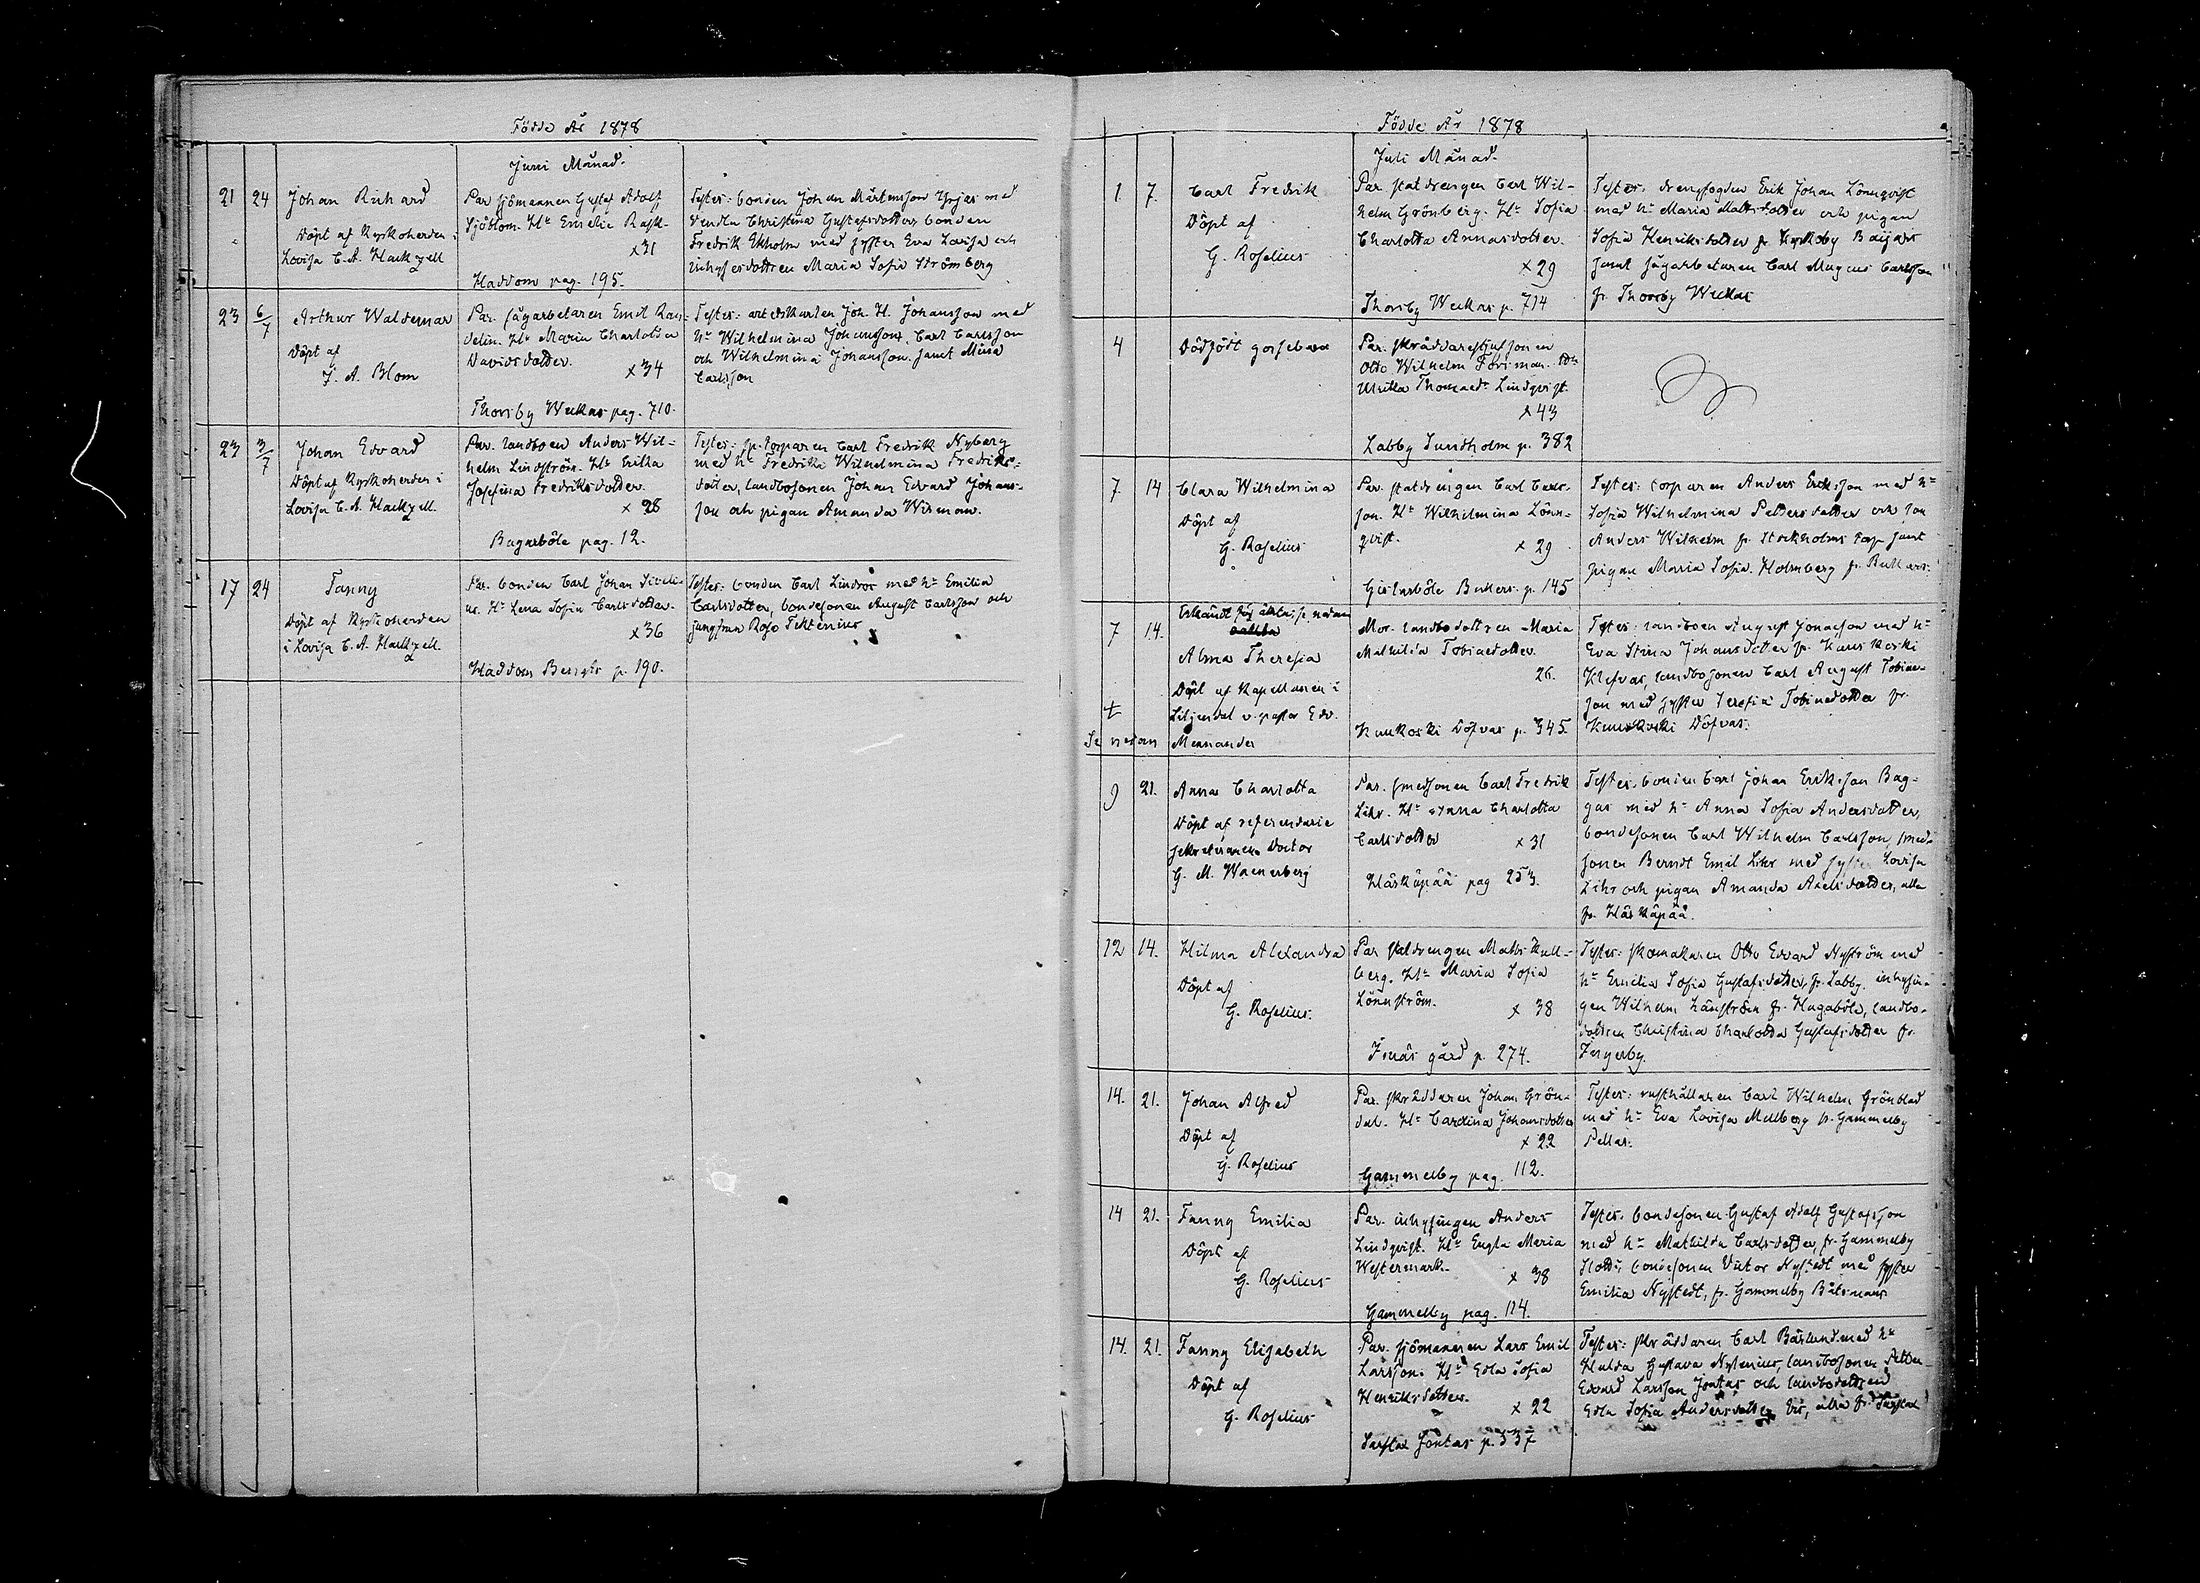 Födde År 1878
Juni Månad.
21 24 Johan Richard
Döpt af Kyrkoherden i
Lovisa C. A. Hackzell
Par sjömannen Gustaf Adolf
Sjöblom. Hu Emelie Rask.
x31
Haddom pag. 195.
Testes: bonden Johan Mårtensson med
Vendla Christina Gustafsdotter bonden
Fredrik Ekholm med syster Eva Lovisa och
inhysesdottren Maria Sofia Strömberg
23 6/7 Arthur Waldemar
Döpt af
J. A. Blom
Par. sågarbetaren Emil Ran-
delin. Hu Maria Charlotta
Davidsdotter.
x34
Thorsby Weckas pag. 710.
Testes: Joh. H. Johansson med
hu Wilhelmina Johansson, Carl Carlsson
och Wilhelmina Johansson. samt Mina
Carlsson
23 3/7 Johan Edvard
Döpt af Kyrkoherden i
Lovisa C. A. Hackzell.
Par. landboen Anders Wil-
helm Lindström. Hu Erika
Josefina Fredriksdotter.
x 28
Bagarböle pag. 12.
Testes: sp. torparen Carl Fredrik Nyberg
med hu Fredrika Wilhelmina Fredriks-
dotter, landbosonen Johan Edvard Johans-
son och pigan Amanda Wikman.
17 24 Fanny
Döpt af Kyrkoherden
i Lovisa C. A. Hackzell.
Par. bonden Carl Johan Sibeli-
us. Hu Lena Sofia Carlsdotter.
x36
Haddom Bengts p. 190.
Testes: bonden Carl Lindroos med hu Emilia
Carlsdotter, bondesonen August Carlsson och
jungfrun Rosa Tektenius
Födde År 1878
Juli Månad.
1. 7. Carl Fredrik
Döpt af
G. Roselius
Par statdrengen Carl Wil-
helm Grönberg. Hu Sofia
Charlotta Annasdotter.
x29
Thorsby Weckas p. 714
Testes: drengfogden Erik Johan Lönnqvist
med hu Maria Mattsdotter och pigan
Sofia Henriksdotter fr Kyrkoby Baijars
samt sågarbetaren Carl Magnus Carlsson
fr. Thorsby Weckas
4 Dödfödt gossebarn
Par. skräddaregesonen
Otto Wilhelm Forsman. Hu
Ulrika Thomasdr Lindqvist.
x43
Labby Sundholm p. 382
7. 14 Clara Wilhelmina
Döpt af
G. Roselius
Par. statdrengen Carl Carls-
son. Hu Wilhelmina Lönn-
qvist.
x 29
Gislarböle Buckers. p. 145
Testes: torparen Anders Eriksson med hu
Sofia Wilhelmina Pettersdotter och son
Anders Wilhelm fr. Stockholms torp samt
pigan Maria Sofia Holmberg fr. Buckars.
Erkändt för äkta, se nedan
7 14. Alma Theresia
Döpt af Kapellanen i
Liljendal v. pastor Edv.
Mennander
Se nedan
Mor. landbodottren Maria
Mathilda Tobiasdotter.
26.
Kuuskoski Döfvas p. 345.
Testes: landboen August Jonasson med hu
Eva Stina Johansdotter fr. Kuuskoski
Klefvas, landbosonen Carl August Tobias-
son med syster Teresia Tobiasdotter fr.
Kuuskoski Döfvas.
9 21. Anna Charlotta
Döpt af referendarie
sekreteraren Doctor
G. M. Waenerberg
Par. smedsonen Carl Fredrik
Lihr. Hu Anna Charlotta
Carlsdotter
x 31
Härkäpää pag 253.
Testes. bonden Carl Johan Eriksson Bag-
gas med hu Anna Sofia Andersdotter,
bondesonen Carl Wilhelm Carlsson, smed-
sonen Berndt Emil Lihr med syster Lovisa
Lihr och pigan Amanda Axelsdotter, alla
fr. Härkäpää.
12 14. Hilma Alexandra
Döpt af
G. Roselius.
Par statdrengen Matts Kull-
berg. Hu Maria Sofia
Lönnström.
x 38
Tjusterby gård p. 274.
Testes: skomakaren Otto Edvard Nyström med
hu Emilia Sofia Gustafsdotter, fr. Labby, inhysin-
gen Wilhelm Länström fr. Hagaböle, landbo-
dottren Christina Charlotta Gustafsdotter fr.
Ingerby.
14. 21. Johan Alfred
Döpt af
G. Roselius
Par. skräddaren Johan Grön-
dal. Hu Carolina Johansdotter
x 22
Gammelby pag. 112.
Testes: rusthållaren Carl Wilhelm Grönblad
med hu Eva Lovisa Mellberg fr. Gammelby
Pellas.
14 21. Fanny Emilia
Döpt af
G. Roselius
Par. inhysingen Anders
Lindqvist. Hu Engla Maria
Westermark.
x 38
Gammelby pag. 114.
Testes: bondesonen Gustaf Adolf Gustafsson
med hu Mathilda Carlsdotter, fr. Gammelby
Slotts, bondesonen Victor Nystedt med syster
Emilia Nystedt, fr. Gammelby Båtsmans
14. 21. Fanny Elisabeth
Döpt af
G. Roselius
Par. sjömannen Lars Emil
Larsson. Hu Edla Sofia
Henriksdotter.
x 22
Sarflax Jontas p. 537
Testes: skräddaren Carl Bärlund med hu
Hulda Gustava Nylenius, landbosonen Petter
Edvard Larsson Jontas och landbodottren
Edla Sofia Andersdotter alla fr. Sarflax